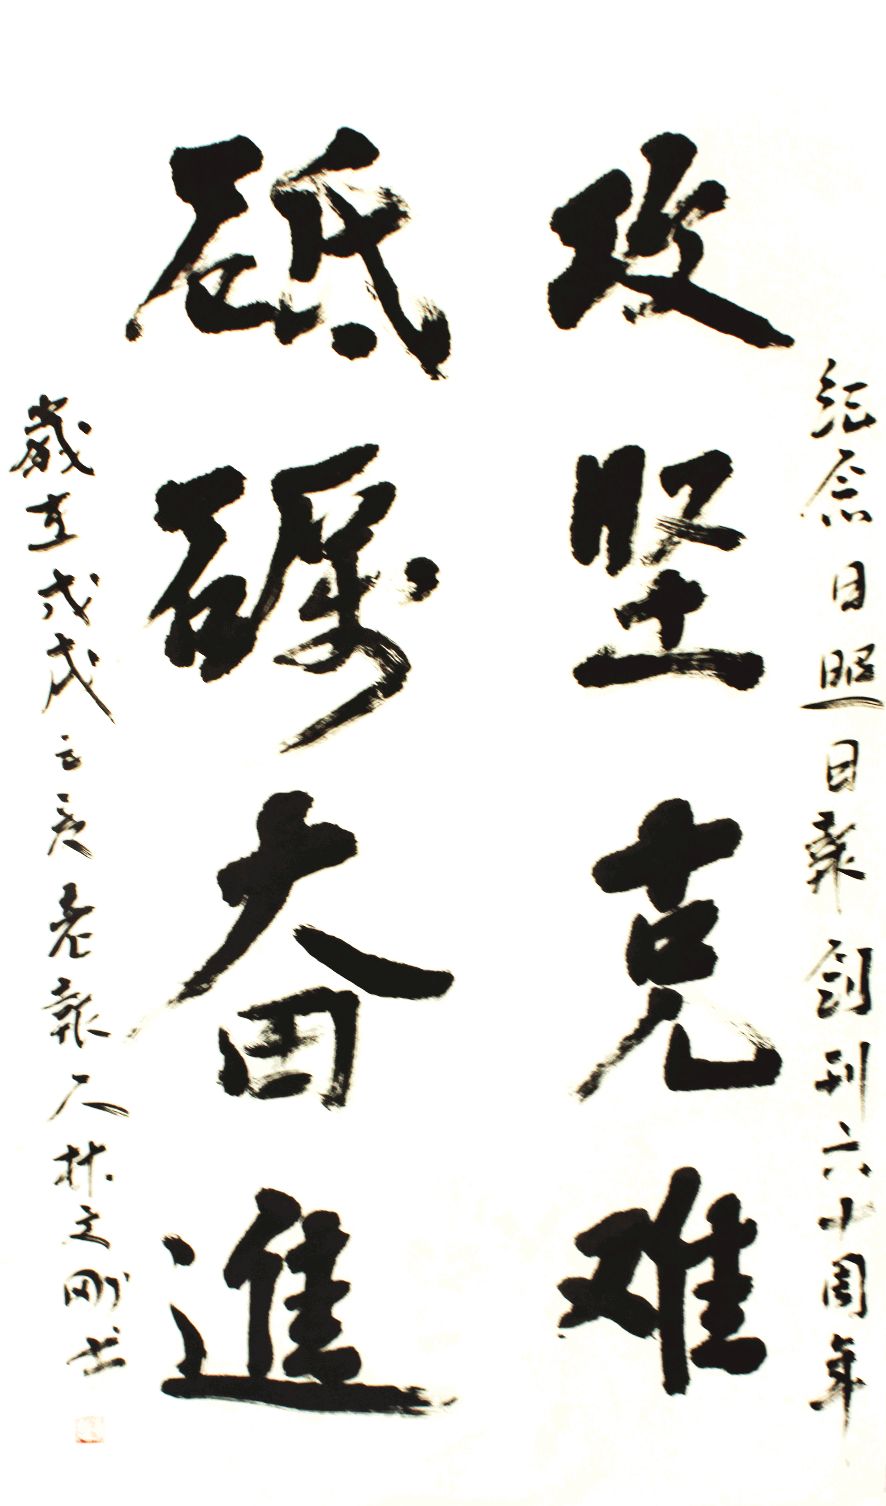 纪念日照日報创刊六十周年
攻坚克难
砥砺奋進
歲在戊戌之夏老報人林刚书